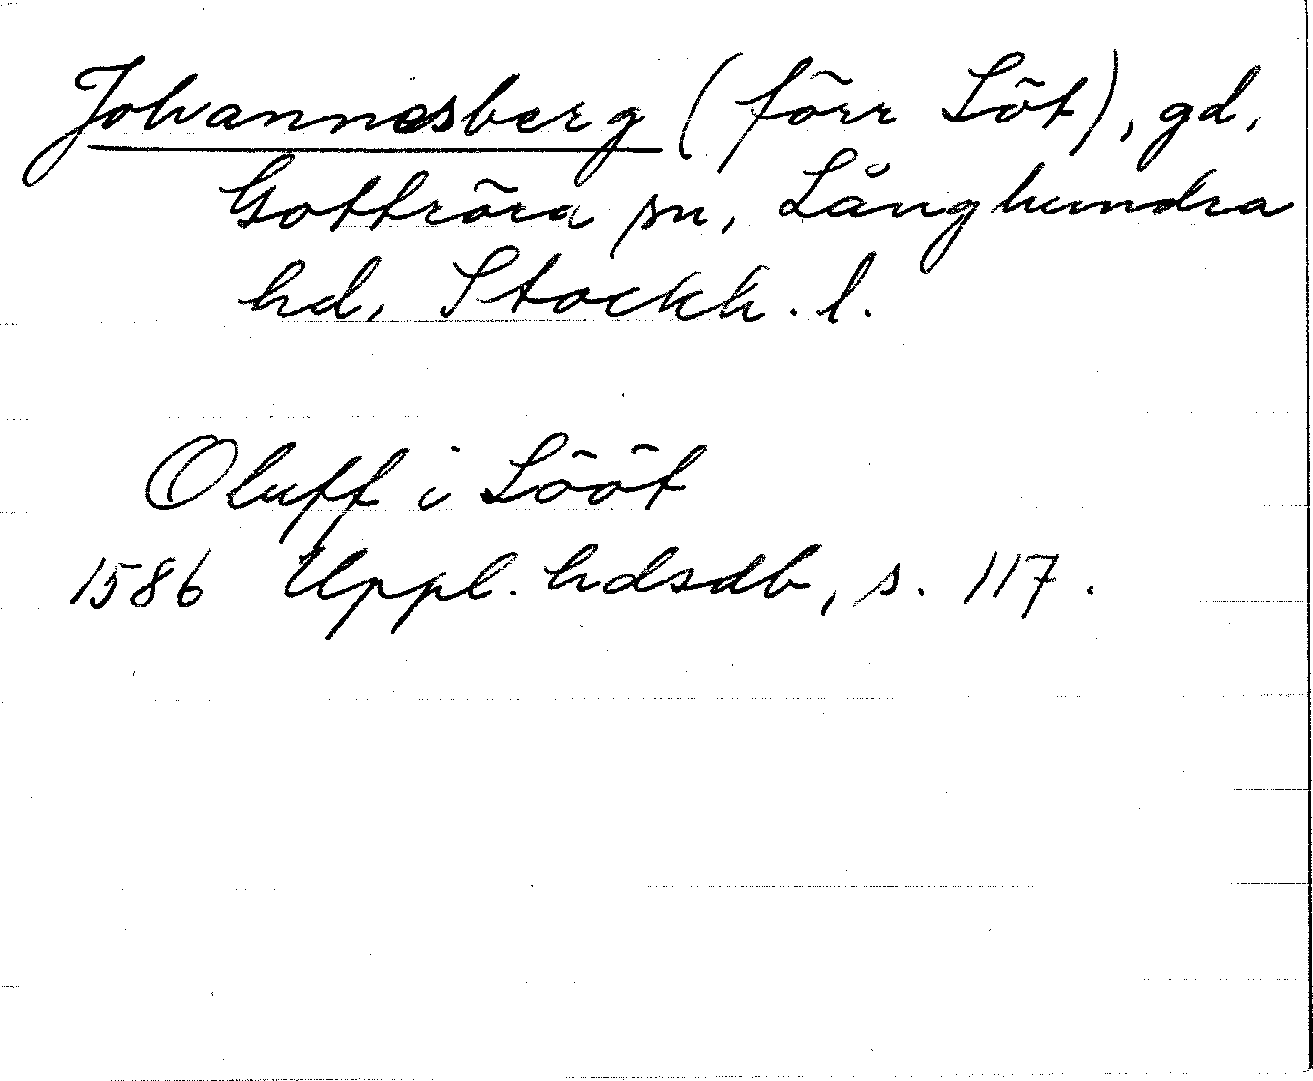 Johannesberg (förr Löt), gd,
Gottröra sn, Långhundra
hd, Stockh. l.
Oluff i Lööt
1586 Uppl. hdsdb, s. 117.